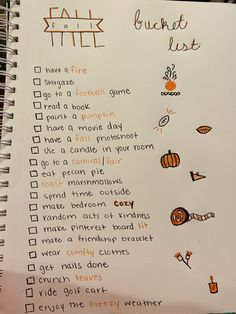 FALL bucket
fall list
FALL
have a fire
Stargaze
go to a football game
read a book
paint a pumpkin
have a movie day
have a fall photoshoot
Use a candle in your room
go to a carnival/fair
eat pecan pie
roast marshmallows
spend time outside
make bedroom cozy
random acts of kindness
make pinterest board lit
make a friendship bracelet
wear comfty clothes
get nails done
crunch leaves
ride golf cart
enjoy the breezy weather